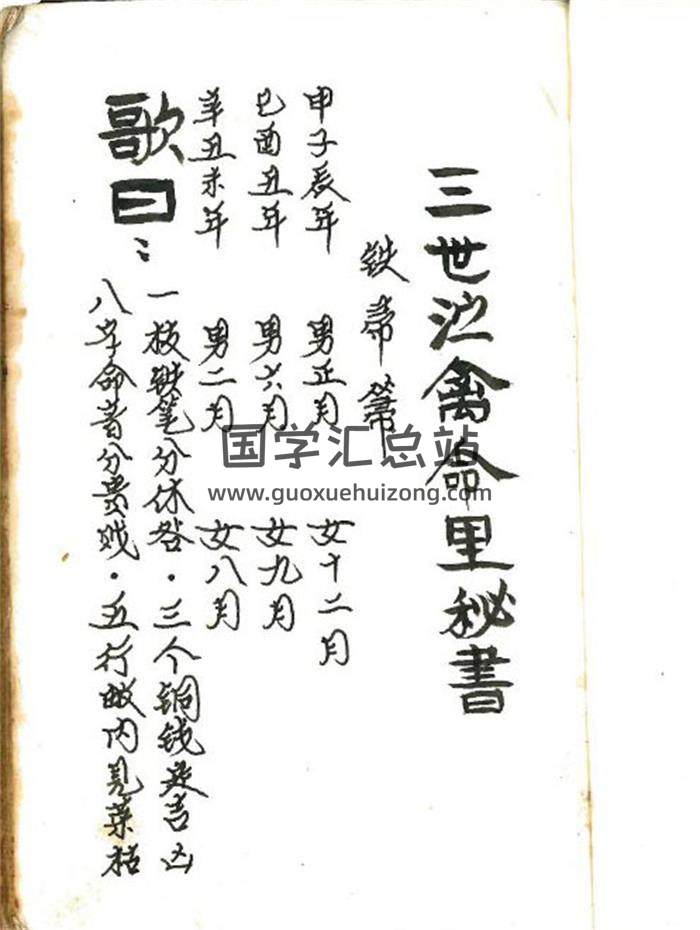 三世沱禽命里秘書
铁帚筹
申子辰年 男正月 女十二月
巳酉丑年 男六月 女九月
辛丑未年 男二月 女八月
歌曰：
一枝铁笔分休咎·三个铜钱定吉凶
八字命者分贵贱·五行故内见荣枯
国学汇总站
www.guoxuehuizong.com